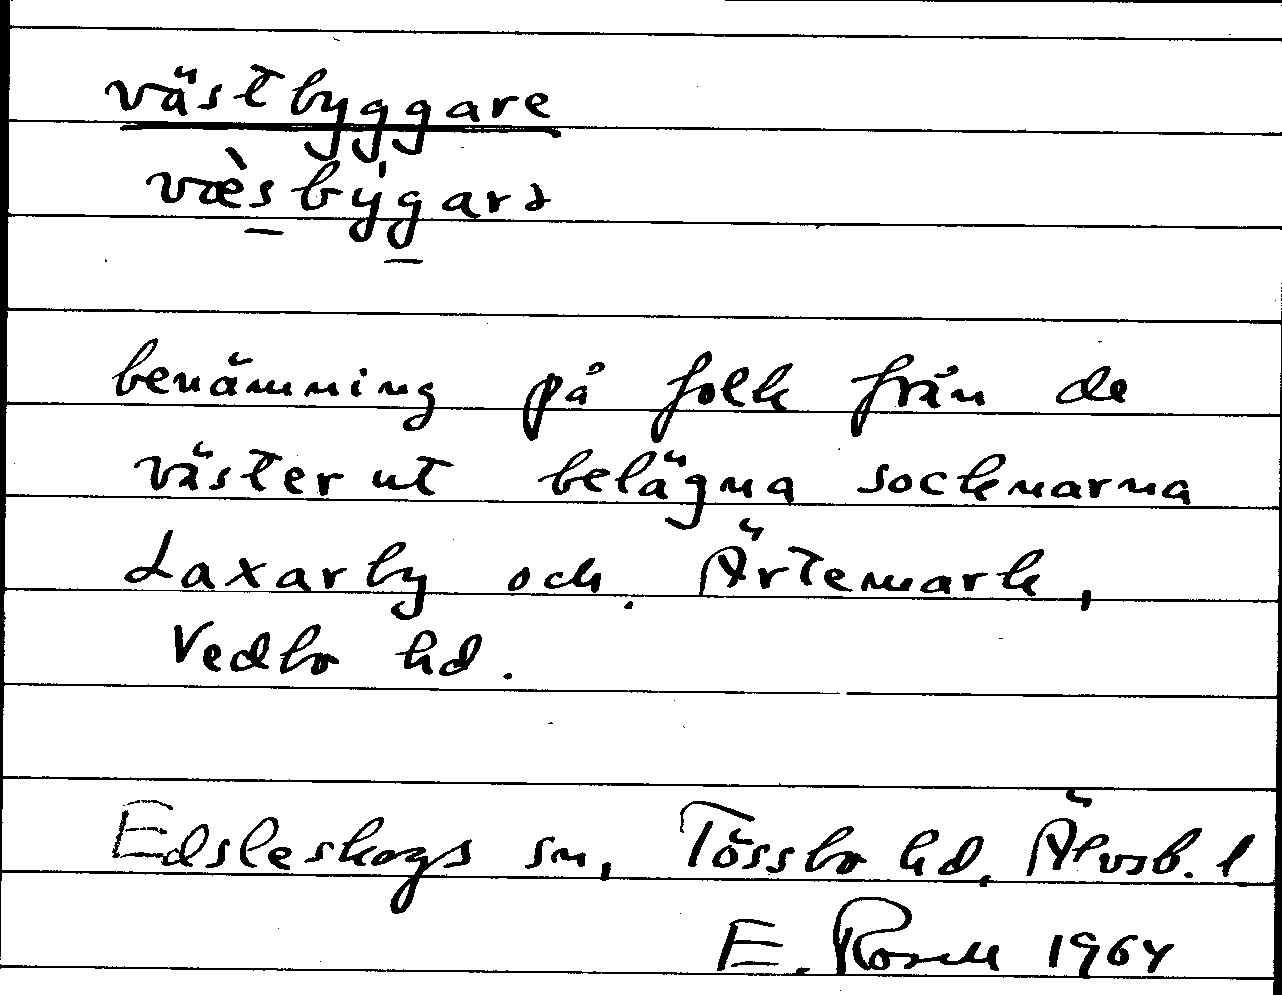 västbyggare
væ̀sbýgarə
benämning på folk från de
väster ut belägna socknarna
Laxarby och Ärtemark,
Vedbo hd.
Edsleskogs sn, Tössbo hd, Älvsb. l
E. Rosell 1964